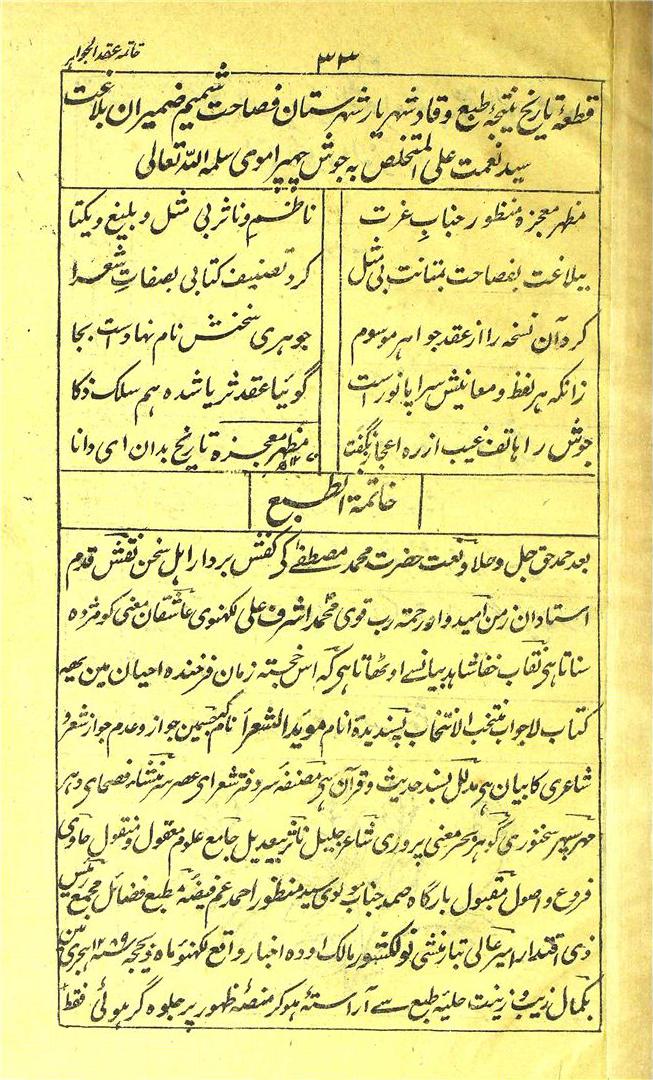 خاتمہ عقد الجواہر
۳۳
قطعۂ تاریخ نتیجۂ طبع وقاد شہریار شہرستان فصاحت شمیم ضمیران بلاغت
سید نعمت علی المتخلص بہ جوش چھپراموی سلمہ اللہ تعالی
مظہر معجزہ منظور جناب عزت
ناظم و ناثر بی مثل و بلیغ و یکتا
ببلاغت بفصاحت بمتانت بی مثل
کرد تصنیف کتابی بصفات شعرا
کرد آن نسخہ را از عقد جواہر موسوم
جوہری سخنش نام نہاد است بجا
زانکہ ہر لفظ و معانیش سراپا نور است
گوئیا عقد ثریا شدہ ہم سلک ذکا
جوش را ہاتف غیب از رہ اعجاز بگفتا
مظہر معجزہ تاریخ بدان ای دانا
خاتمۃ الطبع
بعد حمد حق جل و علا و نعت حضرت محمد مصطفےٰ کی کفش بردار اہل سخن نقش قدم
استادان زمن امیدوار رحمت رب قوی محمد اشرف علی لکھنوی عاشقان معنی کو مژدہ
سناتا ہی نقاب خفا شاہد بیانسے اوٹھاتا ہی کہ اس خجستہ زمان فرخندہ احیان مین یہہ
کتاب لاجواب منتخب الانتخاب پسندیدۂ انام موید الشعرأ نام کہ جسمین جواز و عدم جواز شعر و
شاعری کا بیان ہی مدلل بسند حدیث و قرآن ہی مصنفہ سر دفتر شعرای عصر سر منشاء فصحای دہر
مہر سپہر سخنوری گوہر بحر معنی پروری شاعر جلیل ناثر بیعدیل جامع علوم معقول و منقول حاوی
فروع و اصول مقبول بارگاہ صمد جناب مولوی سید منظور احمد عم فیضہ مطبع فضائل مجمع رئیس
ذی اقتدار امیر عالی تبار منشی نولکشور مالک اودہ اخبار واقع لکھنؤ ماہ ذیحجہ ۱۲۸۹ ہجری مین
بکمال زیب و زینت حلیہ طبع سے آراستہ ہو کر منصۂ ظہور پر جلوہ گر ہوئی فقط